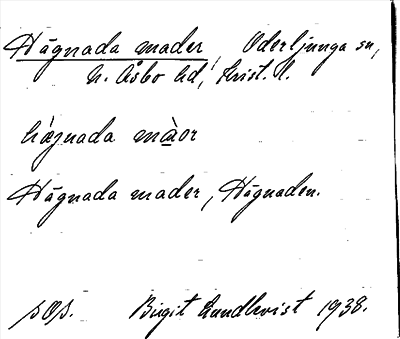 Hägnada mader, Oderljunga sn,
N. Åsbo hd, Krist. l.
hǽgnada màer
Hägnada mader, Hägnaden.
sOs. Birgit Lundkvist 1938.